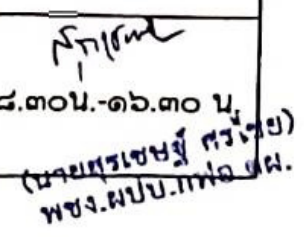 ๘.๓๐น.-๑๖.๓๐ น.
(นายสุรเชษฐ์ ศรีไชย)
พชง.ผปบ.กฟอ.